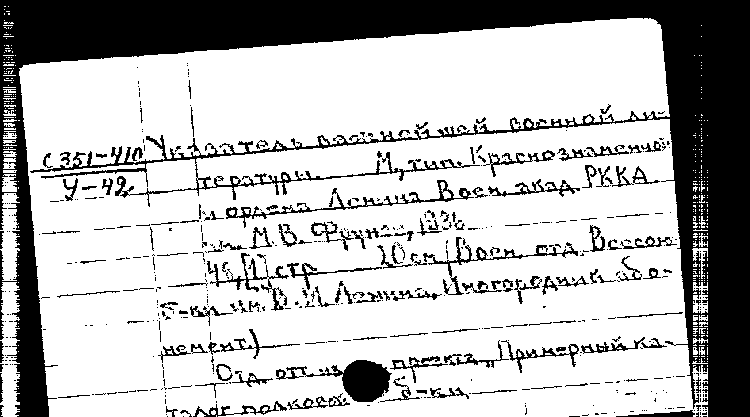 С351-410
У-42
Указатель важнейшей военной ли-
тературы. М., тип. Краснознаменной
и ордена Ленина Воен. акад. РККА
им. М.В. Фрунзе, 1936
46, [1] стр 20 см (Воен. отд. Всесоюз
б-ки им. В. И. Ленина, Иногородний або-
немент.)
Отд. отт. из проекта „Примерный ка-
талог полковой б-ки